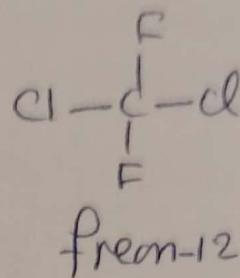 F
Cl — C — Cl
F
freon-12